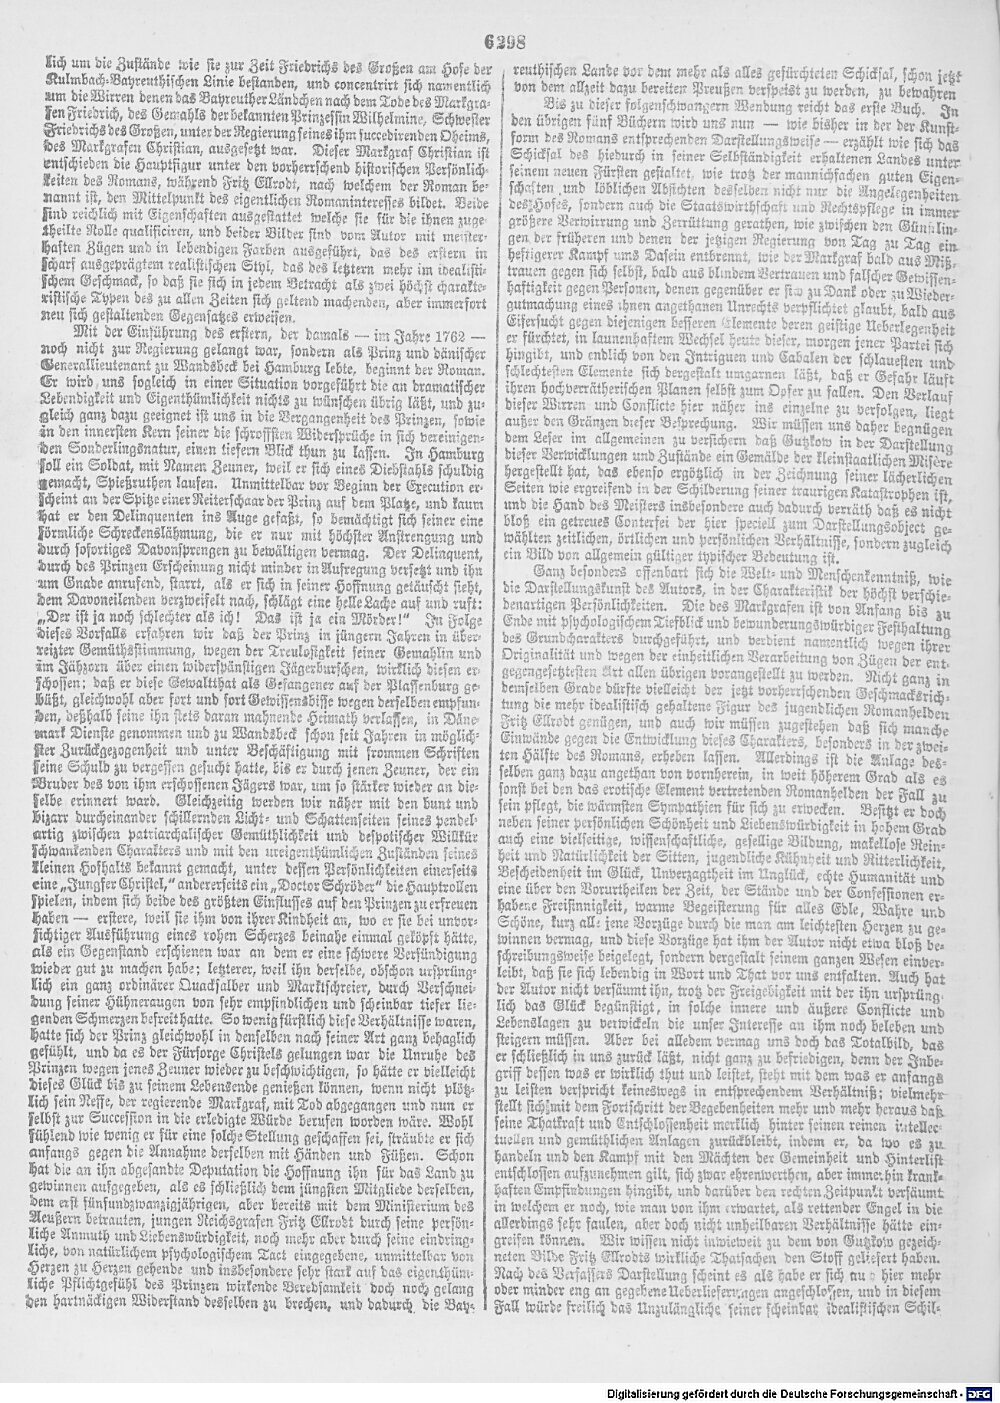 6298
lich um die Zustände wie sie zur Zeit Friedrichs des Großen am Hofe der
Kulmbach-Bayreuthischen Linie bestanden, und concentrirt sich namentlich
um die Wirren denen das Bayreuther Ländchen nach dem Tode des Markgra-
fen Friedrich, des Gemahls der bekannten Prinzessin Wilhelmine, Schwester
Friedrichs des Großen, unter der Regierung seines ihm succedirenden Oheims,
des Markgrafen Christian, ausgesetzt war. Dieser Markgraf Christian ist
entschieden die Hauptfigur unter den vorherrschend historischen Persönlich-
keiten des Romans, während Fritz Ellrodt, nach welchem der Roman be-
nannt ist, den Mittelpunkt des eigentlichen Romaninteresses bildet. Beide
sind reichlich mit Eigenschaften ausgestattet welche sie für die ihnen zuge-
theilte Rolle qualificiren, und beider Bilder sind vom Autor mit meister-
haften Zügen und in lebendigen Farben ausgeführt, das des erstern in
scharf ausgeprägtem realistischen Styl, das des letztern mehr im idealisti-
schem Geschmack, so daß sie sich in jedem Betracht als zwei höchst charakte-
ristische Typen des zu allen Zeiten sich geltend machenden, aber immerfort
neu sich gestaltenden Gegensatzes erweisen.
Mit der Einführung des erstern, der damals — im Jahre 1762 —
noch nicht zur Regierung gelangt war, sondern als Prinz und dänischer
Generallieutenant zu Wandsbeck bei Hamburg lebte, beginnt der Roman.
Er wird uns sogleich in einer Situation vorgeführt die an dramatischer
Lebendigkeit und Eigenthümlichkeit nichts zu wünschen übrig läßt, und zu-
gleich ganz dazu geeignet ist uns in die Vergangenheit des Prinzen, sowie
in den innersten Kern seiner die schroffsten Widersprüche in sich vereinigen-
den Sonderlingsnatur, einen tiefern Blick thun zu lassen. In Hamburg
soll ein Soldat, mit Namen Zeuner, weil er sich eines Diebstahls schuldig
gemacht, Spießruthen laufen. Unmittelbar vor Beginn der Execution er-
scheint an der Spitze einer Reiterschaar der Prinz auf dem Platze, und kaum
hat er den Delinquenten ins Auge gefaßt, so bemächtigt sich seiner eine
förmliche Schreckenslähmung, die er nur mit höchster Anstrengung und
durch sofortiges Davonsprengen zu bewältigen vermag. Der Delinquent,
durch des Prinzen Erscheinung nicht minder in Aufregung versetzt und ihn
um Gnade anrufend, starrt, als er sich in seiner Hoffnung getäuscht sieht,
dem Davoneilenden verzweifelt nach, schlägt eine helle Lache auf und ruft:
„Der ist ja noch schlechter als ich! Das ist ja ein Mörder!“ In Folge
dieses Vorfalls erfahren wir daß der Prinz in jüngern Jahren in über-
reizter Gemüthsstimmung, wegen der Treulosigkeit seiner Gemahlin und
im Jähzorn über einen widerspänstigen Jägerburschen, wirklich diesen er-
schossen; daß er diese Gewaltthat als Gefangener auf der Plassenburg ge-
büßt, gleichwohl aber fort und fort Gewissensbisse wegen derselben empfun-
den, deßhalb seine ihn stets daran mahnende Heimath verlassen, in Däne-
mark Dienste genommen und zu Wandsbeck schon seit Jahren in möglich-
ster Zurückgezogenheit und unter Beschäftigung mit frommen Schriften
seine Schuld zu vergessen gesucht hatte, bis er durch jenen Zeuner, der ein
Bruder des von ihm erschossenen Jägers war, um so stärker wieder an die-
selbe erinnert ward. Gleichzeitig werden wir näher mit den bunt und
bizarr durcheinander schillernden Licht- und Schattenseiten seines pendel-
artig zwischen patriarchalischer Gemüthlichkeit und despotischer Willkür
schwankenden Charakters und mit den ureigenthümlichen Zuständen seines
kleinen Hofhalts bekannt gemacht, unter dessen Persönlichkeiten einerseits
eine „Jungfer Christel,“ andererseits ein „Doctor Schröder“ die Hauptrollen
spielen, indem sich beide des größten Einflusses auf den Prinzen zu erfreuen
haben — erstere, weil sie ihm von ihrer Kindheit an, wo er sie bei unvor-
sichtiger Ausführung eines rohen Scherzes beinahe einmal geköpft hätte,
als ein Gegenstand erschienen war an dem er eine schwere Versündigung
wieder gut zu machen habe; letzterer, weil ihn derselbe, obschon ursprüng-
lich ein ganz ordinärer Quacksalber und Marktschreier, durch Verschnei-
dung seiner Hühneraugen von sehr empfindlichen und scheinbar tiefer lie-
genden Schmerzen befreit hatte. So wenig fürstlich diese Verhältnisse waren,
hatte sich der Prinz gleichwohl in denselben nach seiner Art ganz behaglich
gefühlt, und da es der Fürsorge Christels gelungen war die Unruhe des
Prinzen wegen jenes Zeuner wieder zu beschwichtigen, so hätte er vielleicht
dieses Glück bis zu seinem Lebensende genießen können, wenn nicht plötz-
lich sein Neffe, der regierende Markgraf, mit Tod abgegangen und nun er
selbst zur Succession in die erledigte Würde berufen worden wäre. Wohl
fühlend wie wenig er für eine solche Stellung geschaffen sei, sträubte er sich
anfangs gegen die Annahme derselben mit Händen und Füßen. Schon
hat die an ihn abgesandte Deputation die Hoffnung ihn für das Land zu
gewinnen aufgegeben, als es schließlich dem jüngsten Mitgliede derselben,
dem erst fünfundzwanzigjährigen, aber bereits mit dem Ministerium des
Aeußern betrauten, jungen Reichsgrafen Fritz Ellrodt durch seine persön-
liche Anmuth und Liebenswürdigkeit, noch mehr aber durch seine eindring-
liche, von natürlichem psychologischem Tact eingegebene, unmittelbar von
Herzen zu Herzen gehende und insbesondere sehr stark auf das eigenthüm-
liche Pflichtgefühl des Prinzen wirkende Beredsamkeit doch noch gelang
den hartnäckigen Widerstand desselben zu brechen, und dadurch die Bay-
reuthischen Lande vor dem mehr als alles gefürchteten Schicksal, schon jetzt
von dem allzeit dazu bereiten Preußen verspeist zu werden, zu bewahren
Bis zu dieser folgenschwangern Wendung reicht das erste Buch. In
den übrigen fünf Büchern wird uns nun — wie bisher in der der Kunst-
form des Romans entsprechenden Darstellungsweise — erzählt wie sich das
Schicksal des hiedurch in seiner Selbständigkeit erhaltenen Landes unter
seinem neuen Fürsten gestaltet, wie trotz der mannichfachen guten Eigen-
schaften und löblichen Absichten desselben nicht nur die Angelegenheiten
des Hofes, sondern auch die Staatswirthschaft und Rechtspflege in immer
größere Verwirrung und Zerrüttung gerathen, wie zwischen den Günstlin-
gen der früheren und denen der jetzigen Regierung von Tag zu Tag ein
heftigerer Kampf ums Dasein entbrennt, wie der Markgraf bald aus Miß-
trauen gegen sich selbst, bald aus blindem Vertrauen und falscher Gewissen-
haftigkeit gegen Personen, denen gegenüber er sich zu Dank oder zu Wieder-
gutmachung eines ihnen angethanen Unrechts verpflichtet glaubt, bald aus
Eifersucht gegen diejenigen besseren Elemente deren geistige Ueberlegenheit
er fürchtet, in launenhaftem Wechsel heute dieser, morgen jener Partei sich
hingibt, und endlich von den Intriguen und Cabalen der schlauesten und
schlechtesten Elemente sich dergestalt umgarnen läßt, daß er Gefahr läuft
ihren hochverrätherischen Planen selbst zum Opfer zu fallen. Den Verlauf
dieser Wirren und Conflicte hier näher ins einzelne zu verfolgen, liegt
außer den Gränzen dieser Besprechung. Wir müssen uns daher begnügen
dem Leser im allgemeinen zu versichern daß Gutzkow in der Darstellung
dieser Verwicklungen und Zustände ein Gemälde der kleinstaatlichen Misère
hergestellt hat, das ebenso ergötzlich in der Zeichnung seiner lächerlichen
Seiten wie ergreifend in der Schilderung seiner traurigen Katastrophen ist,
und die Hand des Meisters insbesondere auch dadurch verräth daß es nicht
bloß ein getreues Conterfei der hier speciell zum Darstellungsobject ge-
wählten zeitlichen, örtlichen und persönlichen Verhältnisse, sondern zugleich
ein Bild von allgemein gültiger typischer Bedeutung ist.
Ganz besonders offenbart sich die Welt- und Menschenkenntniß, wie
die Darstellungskunst des Autors, in der Charakteristik der höchst verschie-
denartigen Persönlichkeiten. Die des Markgrafen ist von Anfang bis zu
Ende mit psychologischem Tiefblick und bewunderungswürdiger Festhaltung
des Grundcharakters durchgeführt, und verdient namentlich wegen ihrer
Originalität und wegen der einheitlichen Verarbeitung von Zügen der ent-
gegengesetztesten Art allen übrigen vorangestellt zu werden. Nicht ganz in
demselben Grade dürfte vielleicht der jetzt vorherrschenden Geschmacksrich-
tung die mehr idealistisch gehaltene Figur des jugendlichen Romanhelden
Fritz Ellrodt genügen, und auch wir müssen zugestehen daß sich manche
Einwände gegen die Entwicklung dieses Charakters, besonders in der zwei-
ten Hälfte des Romans, erheben lassen. Allerdings ist die Anlage des-
selben ganz dazu angethan von vornherein, in weit höherem Grad als es
sonst bei den das erotische Element vertretenden Romanhelden der Fall zu
sein pflegt, die wärmsten Sympathien für sich zu erwecken. Besitzt er doch
neben seiner persönlichen Schönheit und Liebenswürdigkeit in hohem Grad
auch eine vielseitige, wissenschaftliche, gesellige Bildung, makellose Rein-
heit und Natürlichkeit der Sitten, jugendliche Kühnheit und Ritterlichkeit,
Bescheidenheit im Glück, Unverzagtheit im Unglück, echte Humanität und
eine über den Vorurtheilen der Zeit, der Stände und der Confessionen er-
habene Freisinnigkeit, warme Begeisterung für alles Edle, Wahre und
Schöne, kurz alle jene Vorzüge durch die man am leichtesten Herzen zu ge-
winnen vermag, und diese Vorzüge hat ihm der Autor nicht etwa bloß be-
schreibungsweise beigelegt, sondern dergestalt seinem ganzen Wesen einver-
leibt, daß sie sich lebendig in Wort und That vor uns entfalten. Auch hat
der Autor nicht versäumt ihn, trotz der Freigebigkeit mit der ihn ursprüng-
lich das Glück begünstigt, in solche innere und äußere Conflicte und
Lebenslagen zu verwickeln die unser Interesse an ihm noch beleben und
steigern müssen. Aber bei alledem vermag uns doch das Totalbild, das
er schließlich in uns zurück läßt, nicht ganz zu befriedigen, denn der Inbe-
griff dessen was er wirklich thut und leistet, steht mit dem was er anfangs
zu leisten verspricht keineswegs in entsprechendem Verhältniß; vielmehr
stellt sich mit dem Fortschritt der Begebenheiten mehr und mehr heraus daß
seine Thatkraft und Entschlossenheit merklich hinter seinen reinen intellec-
tuellen und gemüthlichen Anlagen zurückbleibt, indem er, da wo es zu
handeln und den Kampf mit den Mächten der Gemeinheit und Hinterlist
entschlossen aufzunehmen gilt, sich zwar ehrenwerthen, aber immerhin krank-
haften Empfindungen hingibt, und darüber den rechten Zeitpunkt versäumt
in welchem er noch, wie man von ihm erwartet, als rettender Engel in die
allerdings sehr faulen, aber doch nicht unheilbaren Verhältnisse hätte ein-
greifen können. Wir wissen nicht inwieweit zu dem von Gutzkow gezeich-
neten Bilde Fritz Ellrodts wirkliche Thatsachen den Stoff geliefert haben.
Nach des Verfassers Darstellung scheint es als habe er sich auch hier mehr
oder minder eng an gegebene Ueberlieferungen angeschlossen, und in diesem
Fall würde freilich das Unzulängliche seiner scheinbar idealistischen Schil-
Digitalisierung gefördert durch die Deutsche Forschungsgemeinschaft - DFG